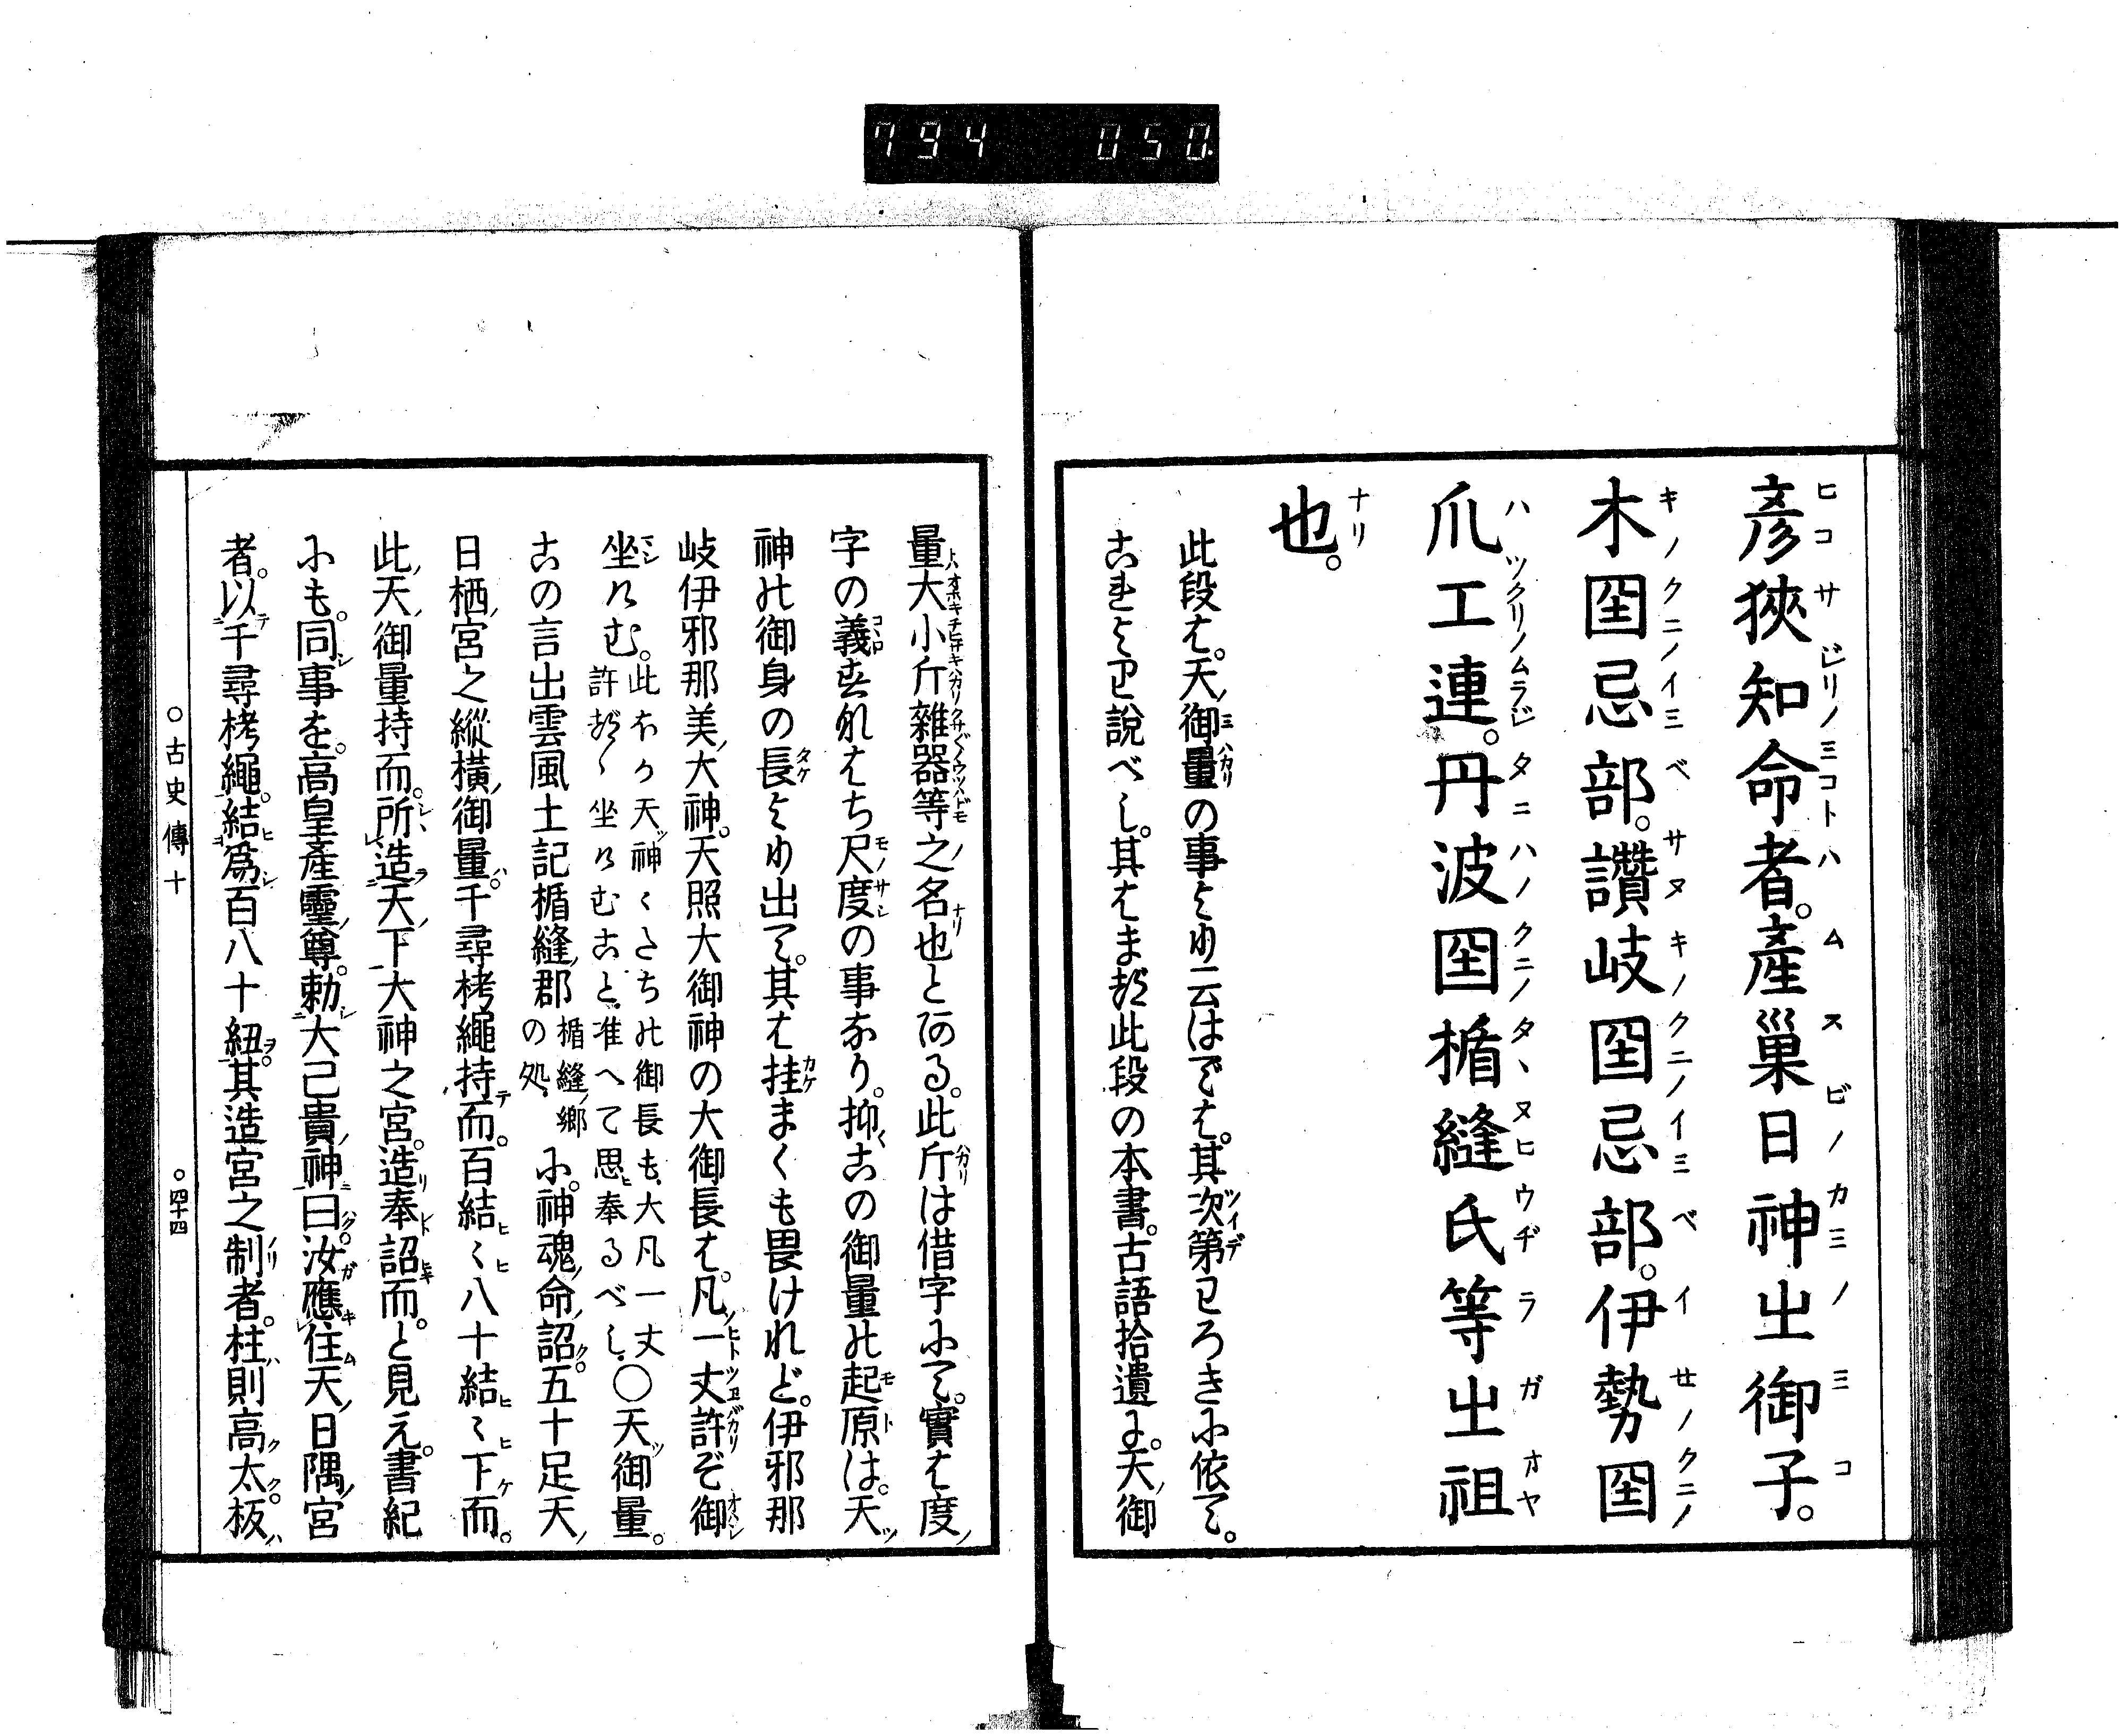 794 050.
彥狹知命者。產巢日神之御子。
木国忌部。讚岐国忌部。伊勢国
爪工連。丹波国楯縫氏等之祖
也。
此段は。天御量の事より云はでは。其次第わろきに依て。
これより說べし。其はまづ此段の本書。古語拾遺に。天御
量大小斤雜器等之名也とある。此斤は借字にて。實は度
字の義すなはち尺度の事なり。抑〻この御量の起原は。天
神の御身の長より出て。其は挂まくも畏けれど。伊邪那
岐伊邪那美大神。天照大御神の大御長は。凡一丈許ぞ御
坐けむ。此ほか天神〻たちの御長も、大凡一丈
許づゝ坐けむこと、准へて思奉るべし。〇天御量。
古の言出雲風土記楯縫郡楯縫鄕
の処、に。神魂命詔五十足天
日栖宮之縱橫御量。千尋栲繩持而。百結〻八十結〻下而。
此天御量持而。所造天下大神之宮。造奉詔而。と見え。書紀
にも。同事を。高皇產靈尊。勅大己貴神曰。汝應住天日隅宮
者。以千尋栲繩。結爲百八十紐。其造宮之制者。柱則高太。板
〇古史傳十
〇四十四